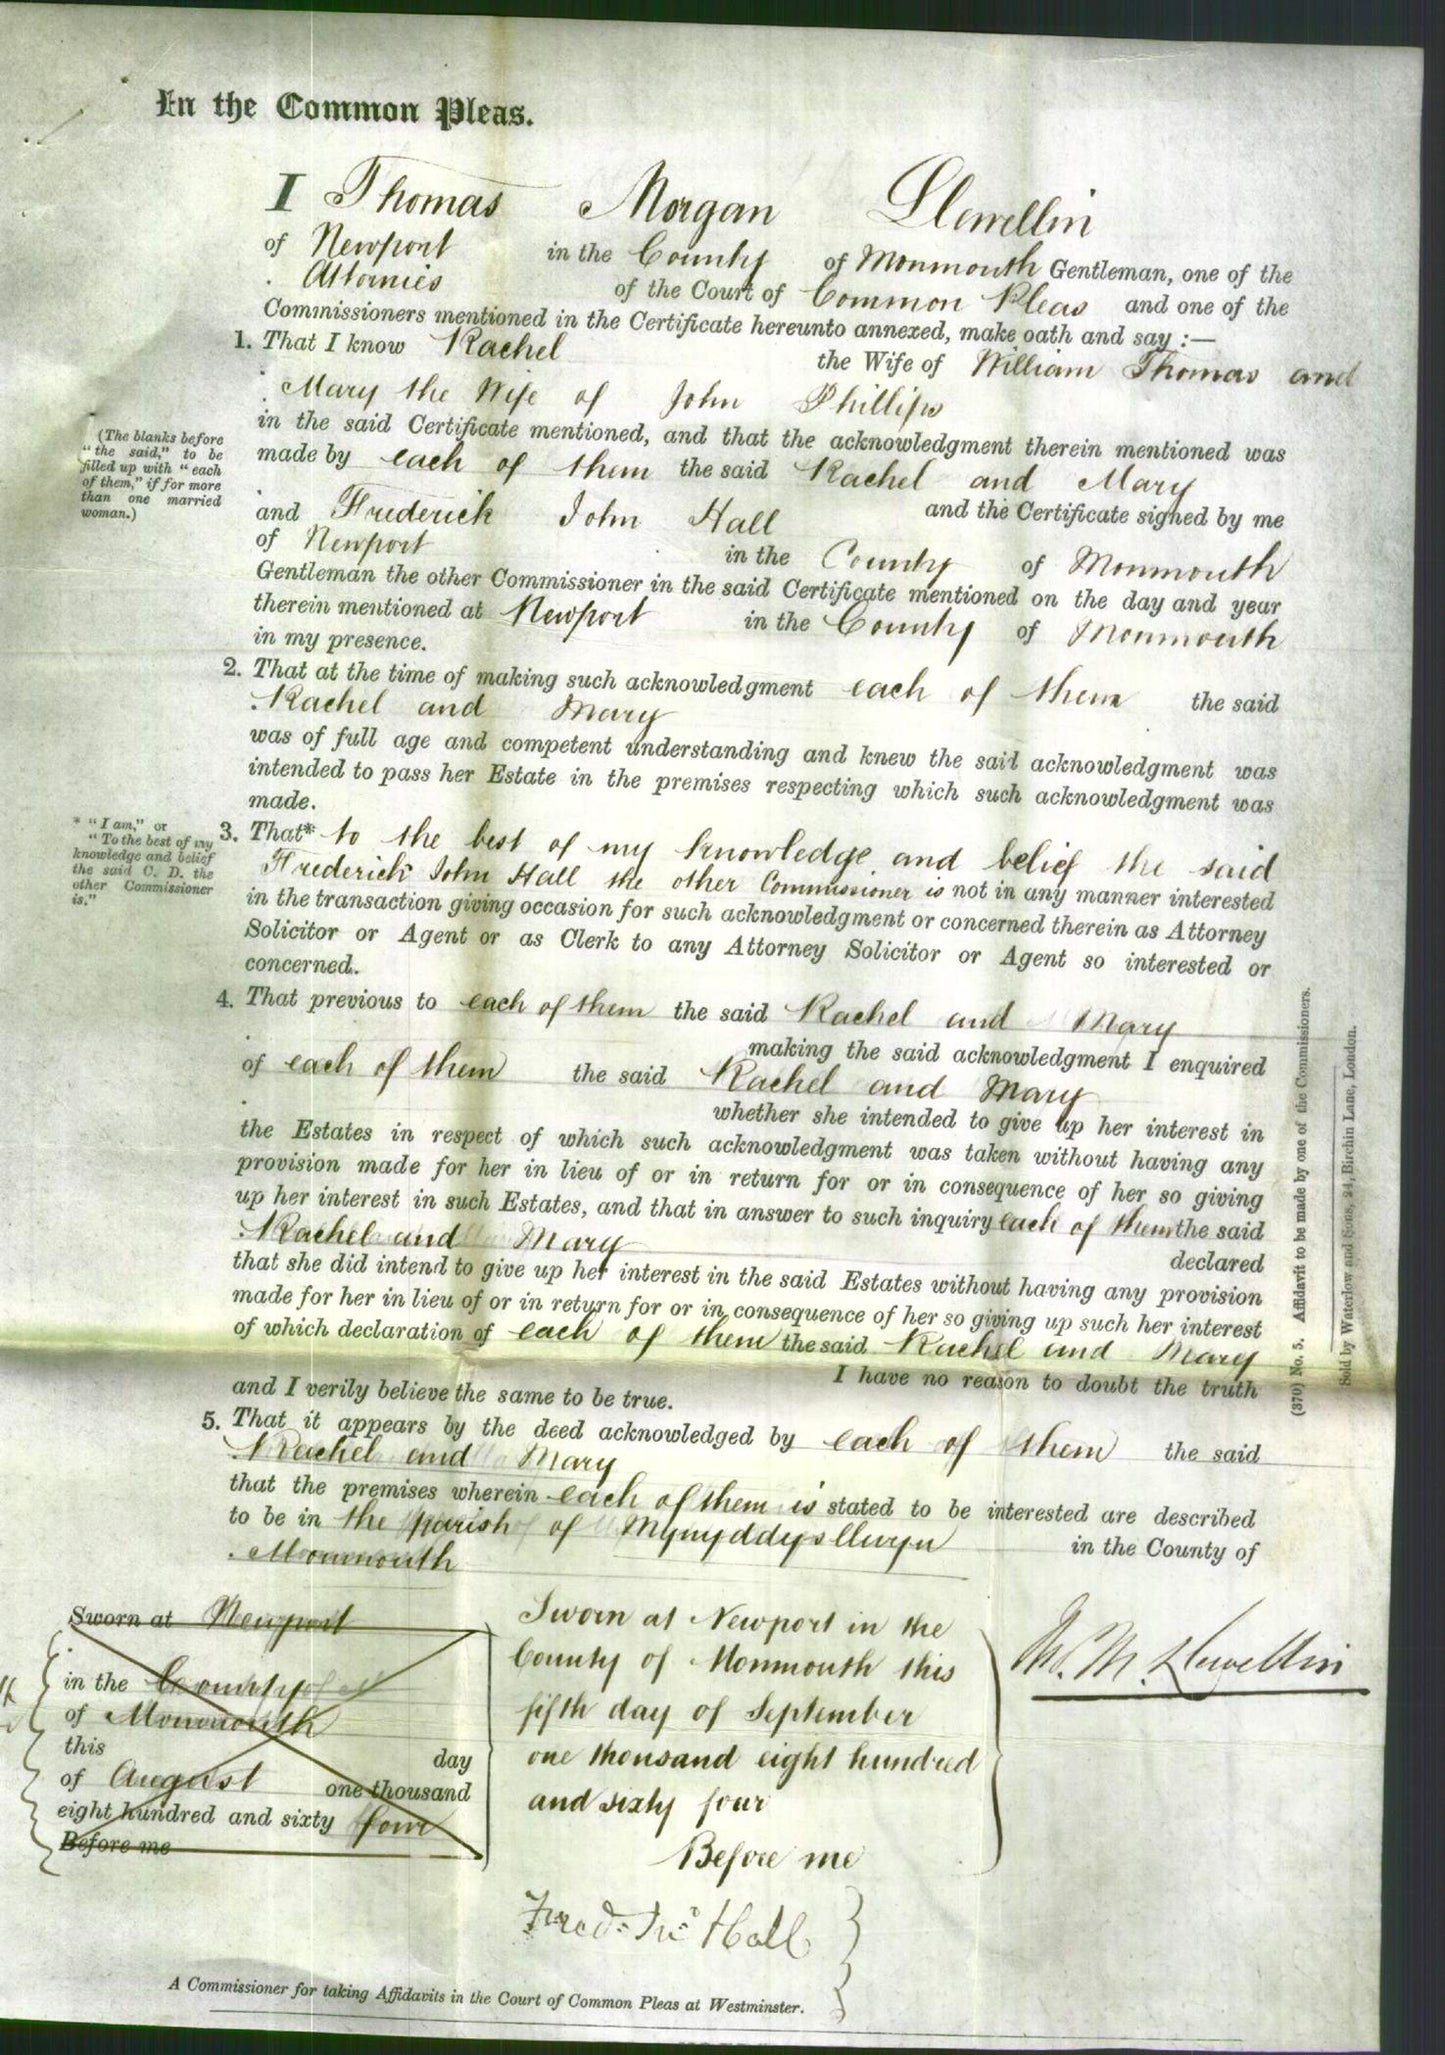 In the Common Pleas.
I Thomas Morgan Llewellin
of Newport in the County of Monmouth Gentleman, one of the
Attornies of the Court of Common Pleas and one of the
Commissioners mentioned in the Certificate hereunto annexed, make oath and say :—
1. That I know Rachel the Wife of William Thomas and
Mary the Wife of John Phillips
in the said Certificate mentioned, and that the acknowledgment therein mentioned was
made by each of them the said Rachel and Mary
and the Certificate signed by me
and Frederick John Hall
of Newport in the County of Monmouth
Gentleman the other Commissioner in the said Certificate mentioned on the day and year
therein mentioned at Newport in the County of Monmouth
in my presence.
(The blanks before
"the said," to be
filled up with "each
of them," if for more
than one married
woman.)
2. That at the time of making such acknowledgment each of them the said
Rachel and Mary
was of full age and competent understanding and knew the said acknowledgment was
intended to pass her Estate in the premises respecting which such acknowledgment was
made.
3. That* to the best of my knowledge and belief the said
Frederick John Hall the other Commissioner is not in any manner interested
in the transaction giving occasion for such acknowledgment or concerned therein as Attorney
Solicitor or Agent or as Clerk to any Attorney Solicitor or Agent so interested or
concerned.
* "I am," or
"To the best of my
knowledge and belief
the said C. D. the
other Commissioner
is."
4. That previous to each of them the said Rachel and Mary
making the said acknowledgment I enquired
of each of them the said Rachel and Mary
whether she intended to give up her interest in
the Estates in respect of which such acknowledgment was taken without having any
provision made for her in lieu of or in return for or in consequence of her so giving
up her interest in such Estates, and that in answer to such inquiry each of them the said
Rachel and Mary declared
that she did intend to give up her interest in the said Estates without having any provision
made for her in lieu of or in return for or in consequence of her so giving up such her interest
of which declaration of each of them the said Rachel and Mary
I have no reason to doubt the truth
and I verily believe the same to be true.
5. That it appears by the deed acknowledged by each of them the said
Rachel and Mary
that the premises wherein each of them is stated to be interested are described
to be in the parish of Mynyddyslwyn in the County of
Monmouth
Sworn at Newport
in the County
of Monmouth
this day
of August one thousand
eight hundred and sixty four
Before me
Sworn at Newport in the
County of Monmouth this
fifth day of September
one thousand eight hundred
and sixty four
Before me
Fredk Jno Hall
Th. M. Llewellin
A Commissioner for taking Affidavits in the Court of Common Pleas at Westminster.
(370) No. 5. Affidavit to be made by one of the Commissioners.
Sold by Waterlow and Sons, 24, Birchin Lane, London.